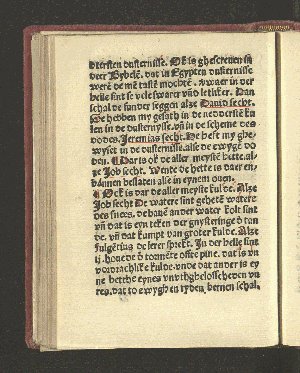 diersten dusternisse. Ock is ghescreuen in
veer Bybelē. dat in Egypten dusternisse
werē de mē tastē mochte. vwaer in der
helle sint se vele swarer vnd letliker. Dan
schal de sunder seggen alze Dauid secht.
We hebben my gesath in de nedderstē ku
len in de dusternysse. vn̄ in de scheme des
dodes. Jeremias secht. He heft my ghe
wyset in de dusternisse. alse de ewygē do
den. ¶ Dar is ock de aller meystē hette. al
ze Job secht. Wente de hette is daer en
bannen beslaten alse in eynem ouen.
¶ Ock is dar de aller meyste kulde. Alze
Job secht De watere sint gehetē watere
des snees. de bauē ander water kolt sint
vn̄ dat is eyn teken der gnysteringe d̄ tan
de. vn̄ dat kumpt van groter kulde. Alze
fulgētius de lerer sprekt. In der helle sint
ij. houede d̄ tormēte ofte pine. dat is vn
vordrachlike kulde. vnde dat ander is ey
ne hetthe eynes vnvthghelosscheden vu
res. dat to ewygh en tyden, bernen schal.